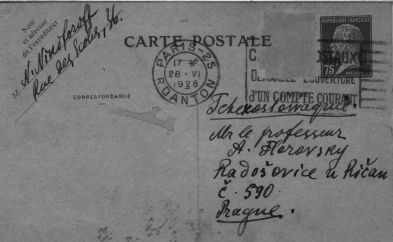 Nom
et adresse
de l'expéditeur
M.
Rue des Ecoles, 36.
CARTE POSTALE
CORRESPONDANCE
PARIS-25
17 *
28 - VI
1928
R. DANTON
DEMANDEZ L'OUVERTURE
D'UN COMPTE COURANT
REPUBLIQUE FRANÇAISE
75
POSTES
Tchécoslovaquie
Mr le professeur
A. Florovsky
Radošovice u Říčan
č. 590.
Prague.